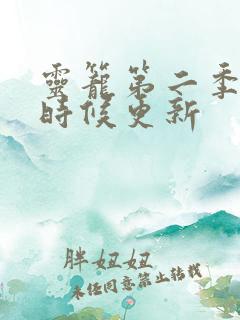 靈籠第二季
時候更新
胖妞妞
未经同意禁止转载